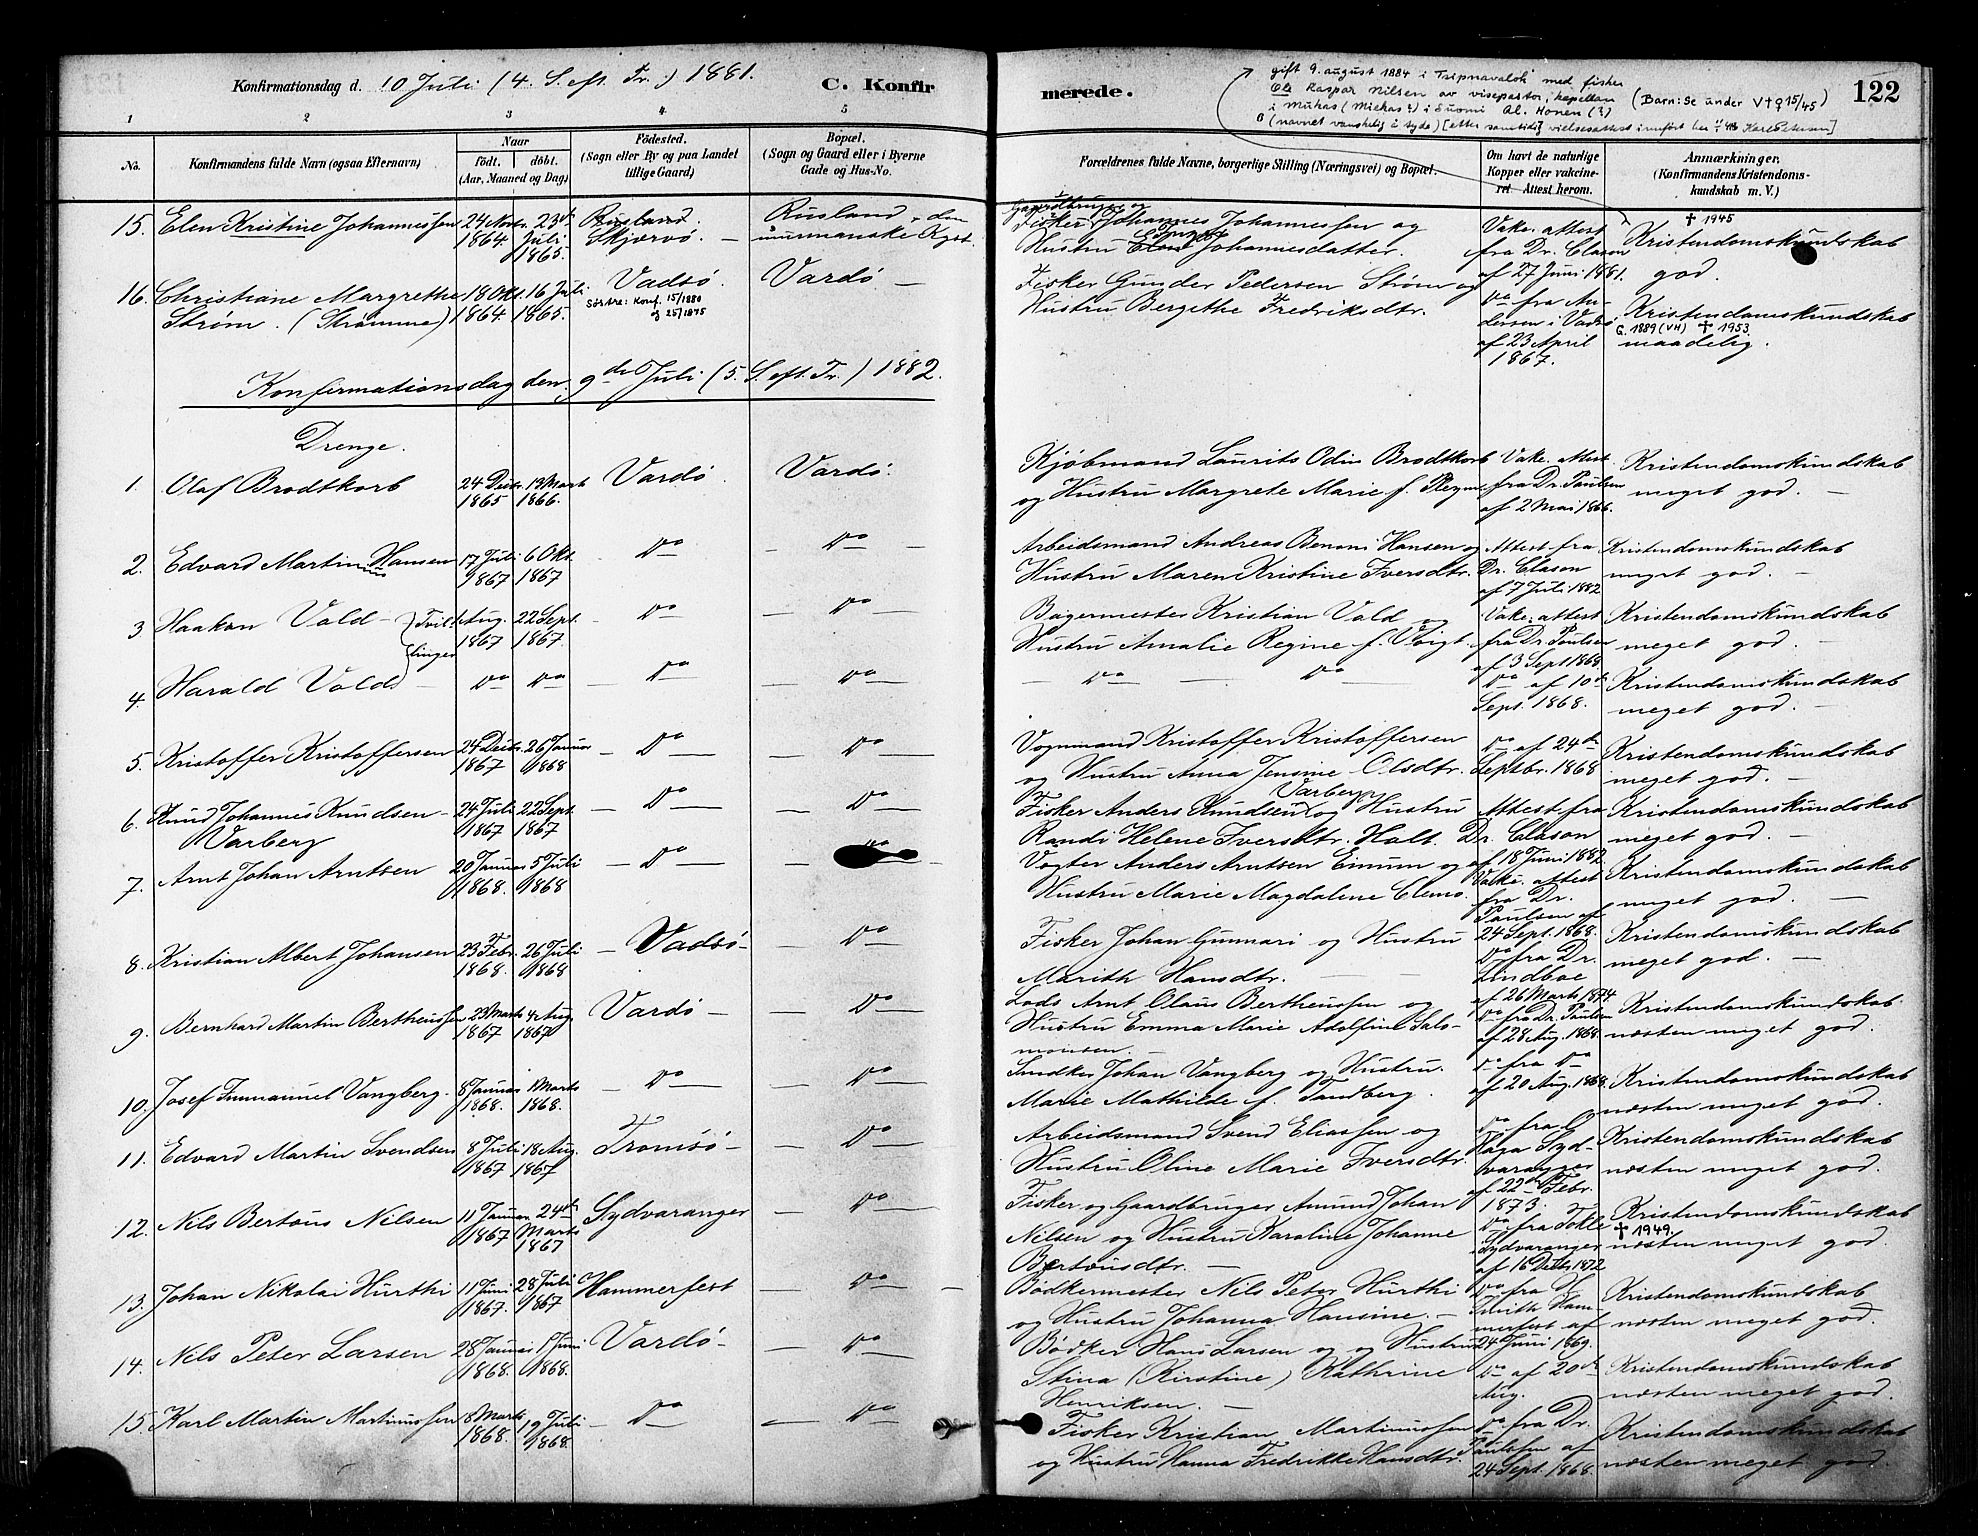 Konfirmationsdag d. 10 Juli (4. S. eft. Tr.) 1881. C. Konfir
merede. 122
gift 9. august 1884 i Tsipnavalok med fisker
Ole Kaspar Nilsen av visepastor, kapellan
i Mukas (Miekas?) i Suomi Al. Honen (?)
(navnet vanskelig å tyde) [etter samtidig vielsesattest innført her Kare Petersen]
(Barn: Se under V+9 15/45)
1 2 3 4 5
No.
Konfirmandens fulde Navn (ogsaa Efternavn)
Naar
födt. döbt.
(Aar, Maaned og Dag)
Födested.
(Sogn eller By og paa Landet
tillige Gaard)
Bopæl.
(Sogn og Gaard eller i Byerne
Gade og Hus-No.
Forældrenes fulde Navne, borgerlige Stilling (Næringsvei) og Bopæl.
Om havt de naturlige
Kopper eller vakcine-
ret. Attest herom.
Anmærkninger.
(Konfirmandens Kristendoms-
kundskab m. V.)
15. Elen Kristine Johannessen 24 Novbr. 1864. 23de Juli 1865. Rusland. Skjærvö. — Rusland, den murmanske Kyst.
Gaardbruger og
Fisker Johannes Johannessen og
Hustru Elen Inger Johannesdatter.
Vakc. attest
fra Dr. Clason
af 27 Juni 1881.
† 1945
Kristendomskundskab
god.
16. Christiane Margrethe Ström. (Strömme) 18 Okt. 1864. 16 Juli 1865. Vadsö Vardö —
Söstre: Konf. 15/1880
og 25/1875
Fisker Gunder Pedersen Ström og
Hustru Bergethe Fredriksdtr.
Do fra An-
dersen i Vadsö
af 23 April
1867.
Kristendomskundskab
G. 1889 (VH) † 1953
maadelig.
Konfirmationsdag den 9de Juli (5. S. eft. Tr.) 1882.
Drenge.
1. Olaf Brodtkorb 24 Decbr. 1865 13 Marts 1866. Vardö Vardö
Kjöbmand Laurits Odin Brodtkorb
og Hustru Margrete Marie f.
Vakc. Attest
fra Dr. Paulsen
af 2 Mai 1866.
Kristendomskundskab
meget god. —
2. Edvard Martinius Hansen 17 Juli 1867 6 Okt. 1867 — Do — Do —
Arbeidsmand Andreas Benoni Hansen og
Hustru Maren Kristine Iversdtr.
Attest fra
Dr. Clason
af 7 Juli 1882
Kristendomskundskab
meget god. —
3 Haakon Vold — Tvil- 1 Aug. 1867 22 Sept. 1867. — Do — Do —
Bagermester Kristian Vold og
Hustru Amalie Regine f. Voigt.
Vakc. attest
fra Dr. Paulsen
af 3 Sept 1868.
Kristendomskundskab
meget god. —
4. Harald Vold — linger Do Do — Do — Do —
— Do — Do —
Do af 10de
Sept. 1868.
Kristendomskundskab
meget god. —
5. Kristoffer Kristoffersen 24 Decbr. 1867 26 Januar 1868 — Do — Do —
Vognmand Kristoffer Kristoffersen
og Hustru Anna Jensine Olsdtr.
Do af 24de
Septbr. 1868
Kristendomskundskab
meget god. —
6. Knud Johannes Knudsen Varberg 24 Juli 1867 22 Sept. 1867 — Do — Do —
Varberg
Fisker Anders Knudsen og Hustru
Randi Helene Iversdtr. Holt.
Attest fra
Dr. Clason
af 18 Juni 1882
Kristendomskundskab
meget god. —
7. Arnt Johan Arntsen 20 Januar 1868. 5 Juli 1868 — Do —
Vogter Anders Arntsen og
Hustru Marie Magdalene
Vakc. attest
fra Dr.
Paulsen af
24 Sept. 1868.
Kristendomskundskab
meget god. —
8. Kristian Albert Johansen 23 Febr. 1868. 26 Juli 1868 — Vadsö — Do —
Fisker Johan Gunnari og Hustru
Marith Hansdtr. —
Do fra Dr.
Lindboe
af 26 Marts 1874.
Kristendomskundskab
meget god. —
9. Bernhard Martin Bertheussen 23 Marts 1867 4 Aug. 1867 Vardö — Do —
Lods Arnt Olaus Bertheussen og
Hustru Emma Marie Adolfine Salo-
monsen —
Do fra Dr. Paulsen
af 28 Aug. 1868.
Kristendomskundskab
næsten meget god.
10. Josef Immanuel Vangberg. 8 Januar 1868. 1 Marts 1868. — Do — Do —
Snedker Johan Vangberg og Hustru
Marie Mathilde f. Tandberg.
Do fra Do
af 20 Aug. 1868.
Kristendomskundskab
næsten meget god.
11. Edvard Martin Svendsen 8 Juli 1867 18 Aug. 1867 Tromsö — Do —
Arbeidsmand Svend Eliassen og
Hustru Oline Marie Iversdtr.
Do fra
Syd-
varanger
af 22de Febr.
1873.
Kristendomskundskab
næsten meget god.
12. Nils Bertous Nilsen 11 Januar 1867 24de Marts 1867 Sydvaranger — Do —
Fisker og Gaardbruger Amund Johan
Nilsen og Hustru Karoline Johanne
Bertousdtr. —
Do fra
Sydvaranger
af 16 Decbr 1872
Kristendomskundskab
† 1949.
næsten meget god.
13. Johan Nikolai Hurthi 11 Juni 1867. 28 Juli 1867 Hammerfest — Do —
Bödkermester Nils Peter Hurthi
og Hustru Johanna Hansine. —
Do fra
Smith Ham-
merfest af
24 Juni 1869.
Kristendomskundskab
næsten meget god.
14. Nils Peter Larsen 28 Januar 1868. 1 Juni 1868. Vardö — Do —
Bödker Hans Larsen og og Hustru
Stina (Kirstine) Kathrine
Henriksen. —
Do af 20de
Aug.
Kristendomskundskab
næsten meget god.
15. Karl Martin Martinussen 8 Marts 1868. 19 Juli 1868. — Do — Do —
Fisker Kristian Martinussen
og Hustru Hanna Fredrikke Hansdtr.
Do fra Dr.
Paulsen af
24 Sept. 1868.
Kristendomskundskab
næsten meget god.